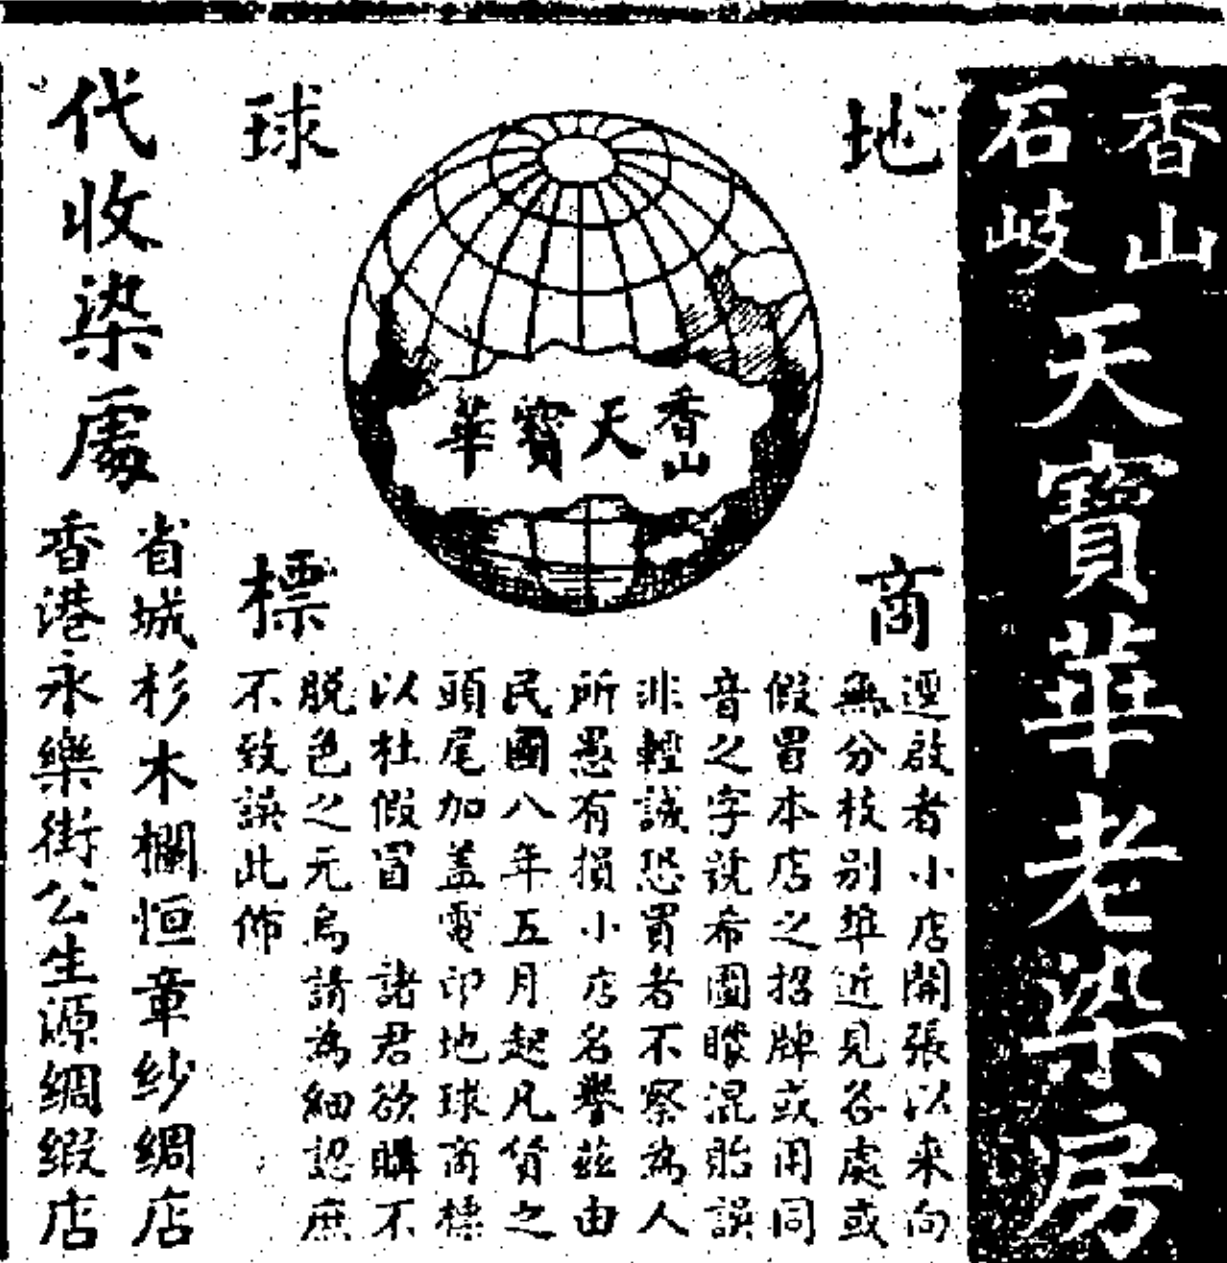 香山
石岐
天寶華老染房
地球
商標
香山
天寶華
逕啟者小店開張以來向
無分枝別埠近見各處或
假冒本店之招牌或用同
音之字說希圖矇混貽誤
非輕誠恐買者不察為人
所愚有損小店名譽茲由
民國八年五月起凡貨之
頭尾加盖電印地球商標
以杜假冒 諸君欲購不
脱色之元烏請為細認庶
不致誤此佈
代收染處
省城杉木欄恒章紗綢店
香港永樂街公生源綢緞店